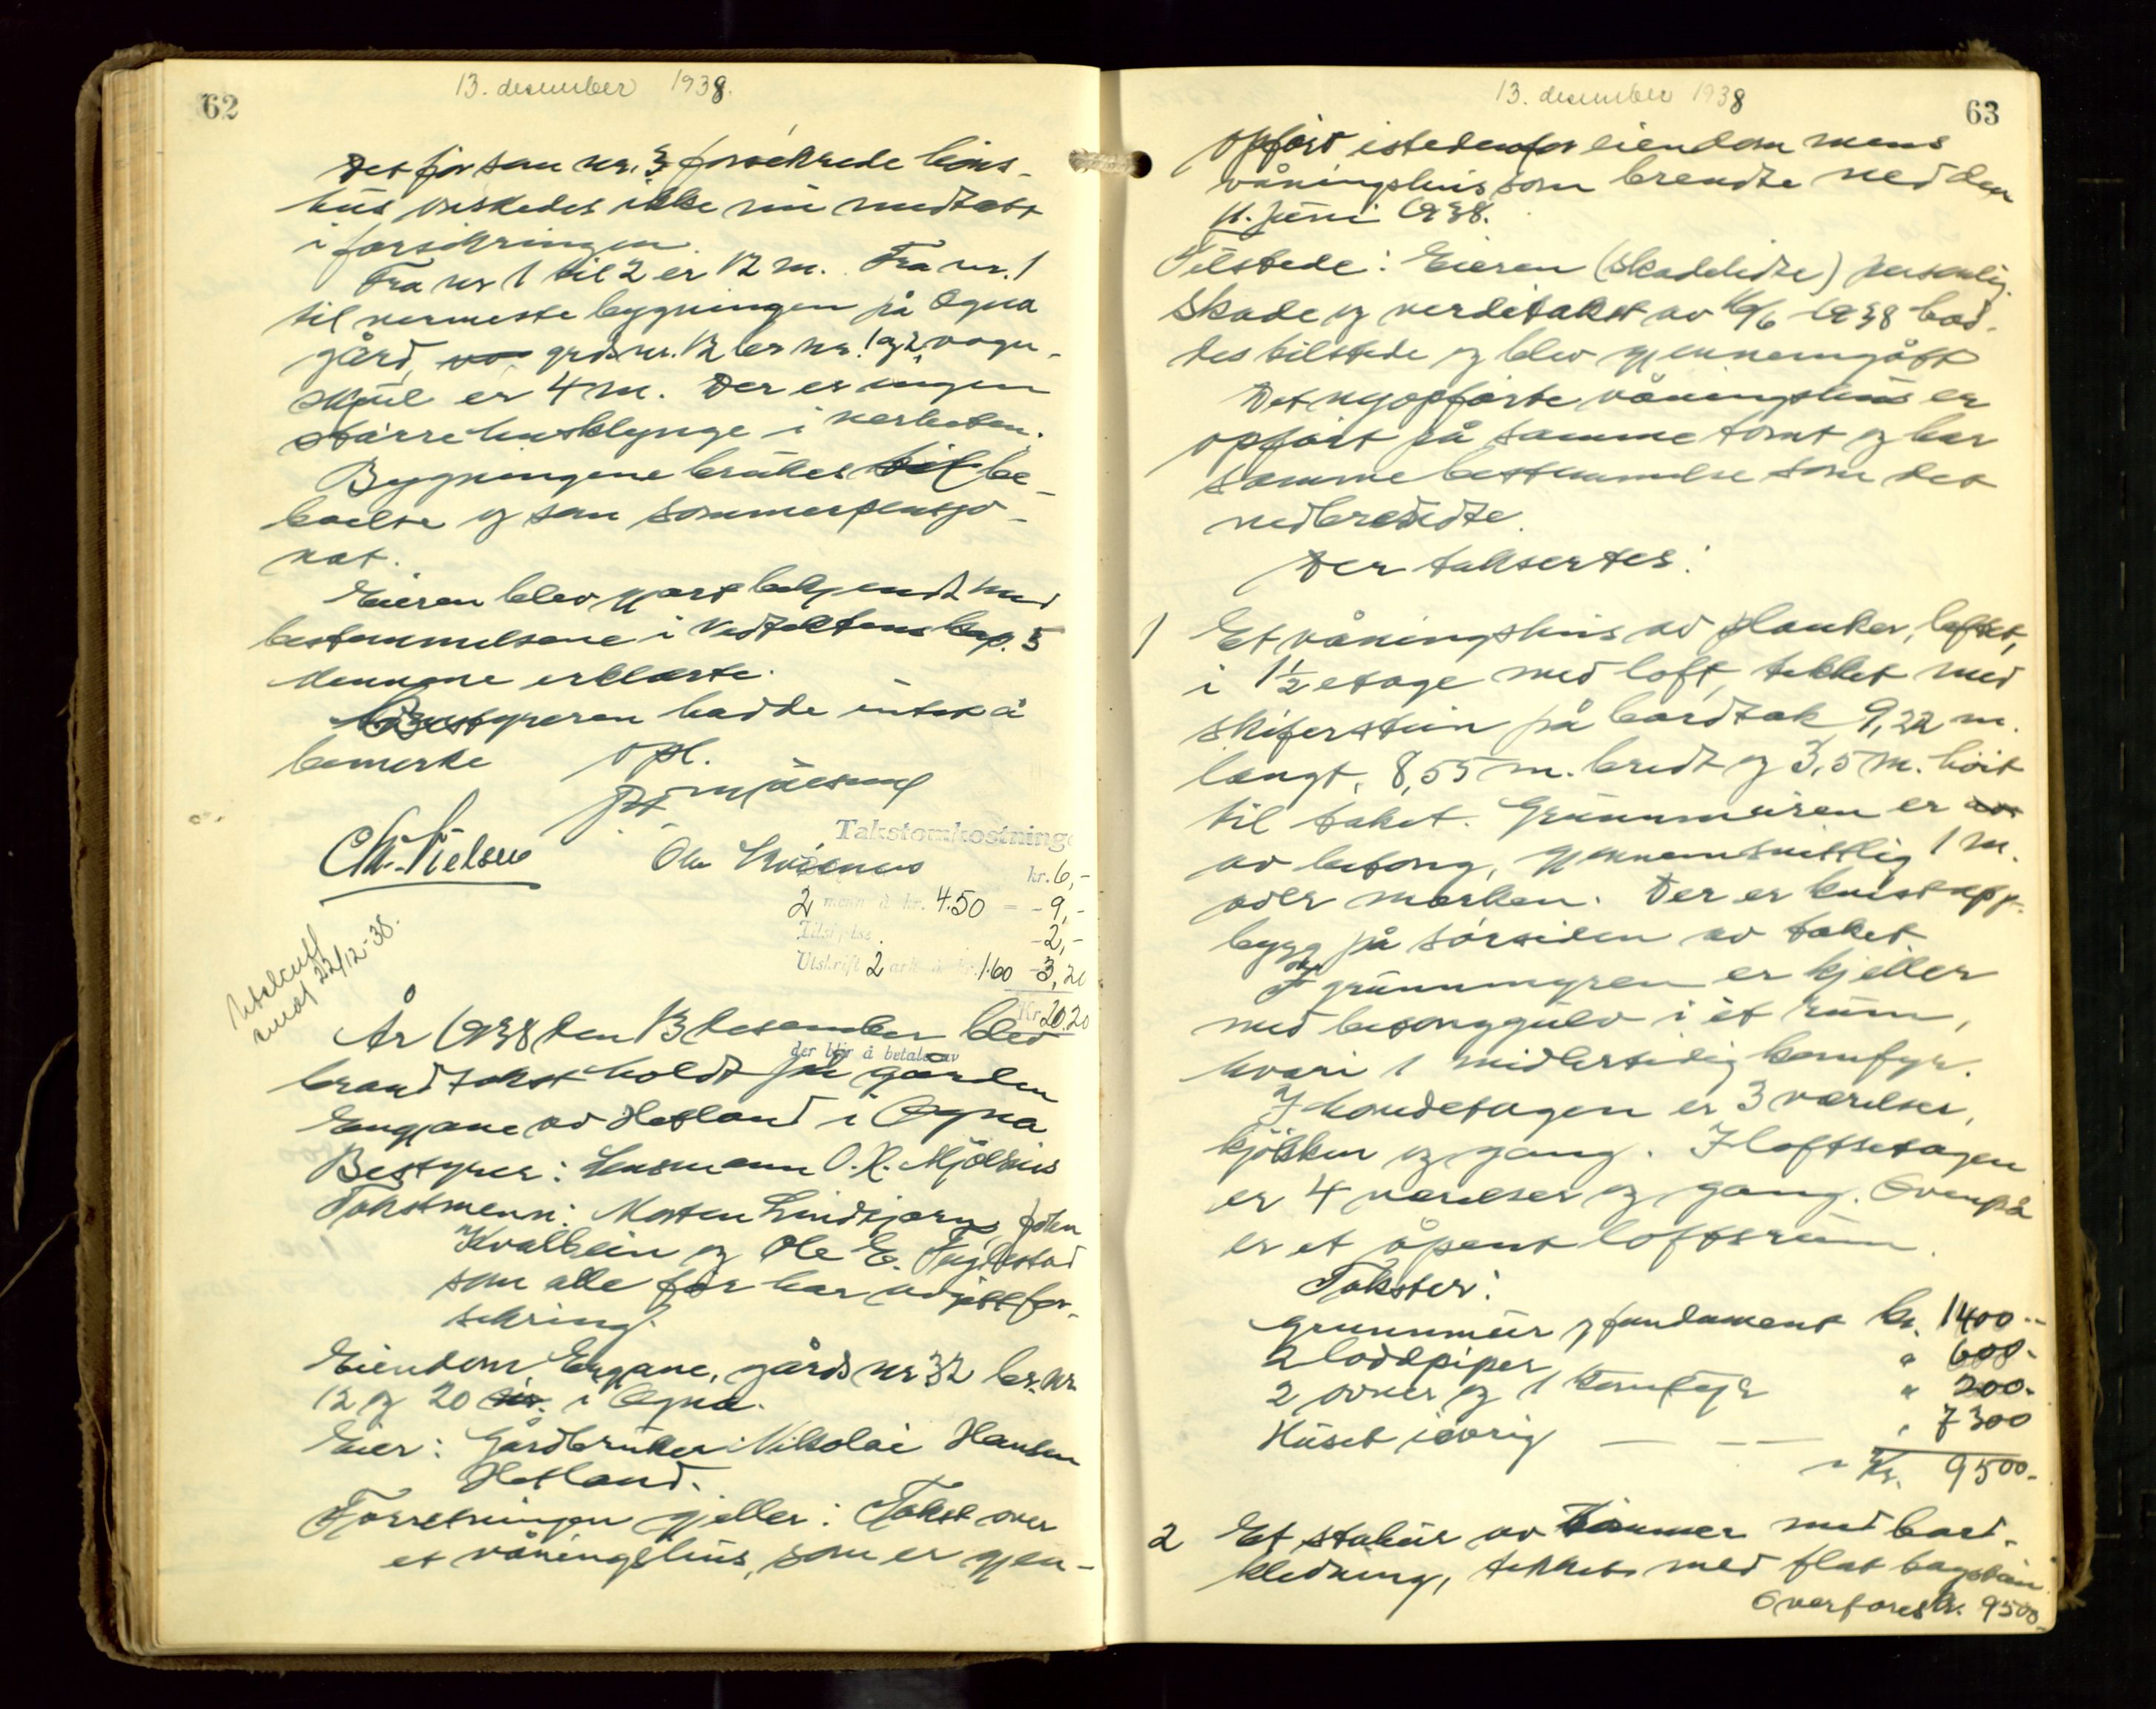 62
13. desember 1938.
Det før som nr. 3 forsikrede høns-
hus ønskedes ikke nu medtatt
i forsikringen.
Fra nr 1 til 2 er 12 m. Fra nr. 1
til nermeste bygningen på Ogna
gård, grds nr. 12 br nr. 1 og 2, vogn-
skjul er 4 m. Der er ingen
større husklynge i nerheten.
Bygningene brukes til be-
boelse og som sommerpensjo-
nat.
Eieren blev gjort bekjendt med
bestemmelsene i Vedtektens kap. 5
dennene erklærte.
Bestyreren hadde intet å
bemerke opl.
Chr. Nielsen
Ola
Takstomkostninge
kr. 6,-
2 menn à kr. 4.50 = - 9,-
Tilsi else. - 2,-
Utskrift 2 ark à kr. 1.60 - 3,20
Kr. 20.20
der blir å betale av
Utskrift
sendt 22/12-38.
År 1938 den 13 desember blev
brandtakst holdt på gården
Engjane av Hetland i Ogna
Bestyrer: Lensmann O. K. Mjølsnes
Takstmenn: Morten Lindtjørn, John
Kvalbein og Ole E. Fuglestad
som alle før har avgitt for-
sikring.
Eiendom Engjane, gårds nr 32 br. nr
12 og 20 i Ogna.
Eier: Gårdbruker Nikolai Hansen
Hetland.
Forretningen gjeller: Takst over
et våningshus, som er gjen-
63
13. desember 1938
opført istedenfor eiendommens
våningshus som brendte ned den
11. juni 1938.
Tilstede: Eieren (skadelidte) personlig.
Skade og verditakst av 16/6 1938 had-
des tilstede og blev gjennemgått
Det nyopførte våningshus er
opført på samme tomt og har
samme bestemmelse som det
nedbrendte.
Der takseres:
1 Et våningshus av planker,
i 1½ etage med loft, tekket med
skiferstein på bordtak 9,22 m.
langt, 8,55 m. bredt og 3,5 m. høit
til taket. Grunnmuren er
av betong, gjennemsnittlig 1 m.
over marken. Der er kvistopp-
bygg på sørsiden av taket.
I grunnmyren er kjeller
med betonggulv i et rum,
hvori 1 midlertidig komfyr.
I hovedetagen er 3 værelser,
kjøkken og gang. I loftsetagen
er 4 værelser og gang. Ovenpå
er et åpent loftsrum.
Takster:
Grunnmur og fundament kr. 1400 --
2 loddpiper " 600 -
2 ovner og 1 komfyr " 200 -
Huset iøvrig — — — " 7300
Kr. 9500 -
2 Et stabur av tømmer med bord-
kledning, tekket med flat tagstein
Overføres kr. 9500 -